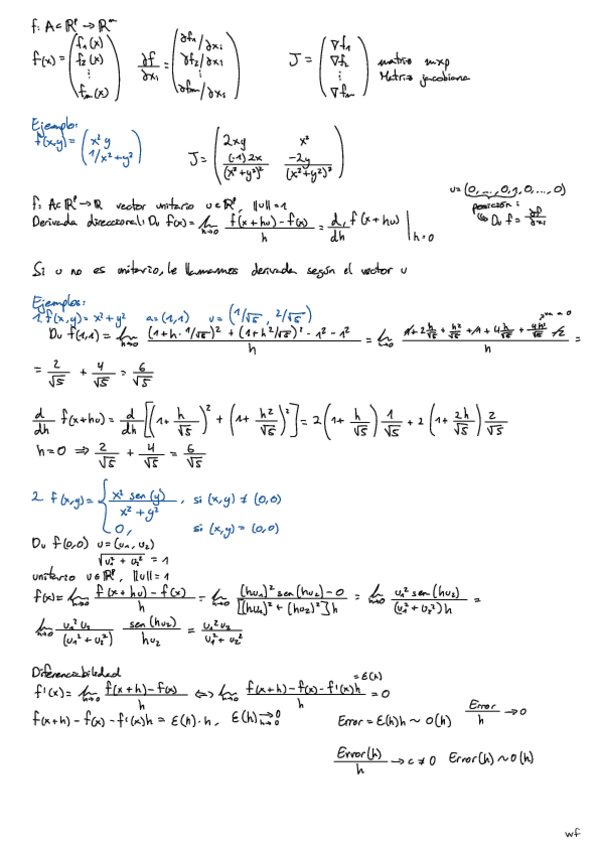 f: A⊂ℝᵖ → ℝᵐ
f(x) = (f₁(x) f₂(x) ⋮ fₘ(x)) ∂f/∂x₁ = (∂f₁/∂x₁ ∂f₂/∂x₁ ⋮ ∂fₘ/∂x₁) J = (∇f₁ ∇f₂ ⋮ ∇fₘ) matriz mxp
Matriz jacobiana
Ejemplo:
f(x,y) = (x²y 1/x²+y²) J = (2xy x² (-1)2x/(x²+y²)² -2y/(x²+y²)²)
f: A⊂ℝᵖ → ℝ vector unitario u∈ℝᵖ, ||u||=1 u=(0,...,0,1,0,...,0)
posición i
Derivada direccional: Dᵤ f(x) = lim h→0 f(x+hu)-f(x)/h = d/dh f(x+hu) | h=0 ↳ Dᵤ f = ∂f/∂xi
Si u no es unitario, le llamamos derivada según el vector u
Ejemplos:
1. f(x,y) = x²+y² a=(1,1) u=(1/√5, 2/√5)
Dᵤ f(1,1) = lim h→0 (1+h·1/√5)² + (1+h²/√5)² - 1² - 1²/h = lim h→0 1+2h/√5 + h²/√5 + 1 + 4h/√5 + 4h²/√5 - 2/h =
= 2/√5 + 4/√5 = 6/√5
d/dh f(x+hu) = d/dh [(1+h/√5)² + (1+h2/√5)²] = 2(1+h/√5) 1/√5 + 2(1+2h/√5) 2/√5
h=0 ⇒ 2/√5 + 4/√5 = 6/√5
2. f(x,y) = { x² sen(y)/x²+y², si (x,y) ≠ (0,0)
0, si (x,y) = (0,0)
Dᵤ f(0,0) u=(u₁,u₂)
√u₁²+u₂² = 1
unitario u∈ℝᵖ, ||u||=1
f(x) = lim h→0 f(x+hu)-f(x)/h = lim h→0 (hu₁)² sen(hu₂)-0/[(hu₁)²+(hu₂)²]h = lim h→0 u₁² sen(hu₂)/(u₁²+u₂²)h =
lim h→0 u₁²u₂/(u₁²+u₂²) sen(hu₂)/hu₂ = u₁²u₂/u₁²+u₂²
Diferenciabilidad
f'(x) = lim h→0 f(x+h)-f(x)/h ⇔ lim h→0 f(x+h)-f(x)-f'(x)h/h = 0 = ε(h)
f(x+h)-f(x)-f'(x)h = ε(h)·h, ε(h) → 0 h→0 Error = ε(h)h ~ o(h) Error/h → 0
Error(h)/h → c≠0 Error(h) ~ O(h)
wf